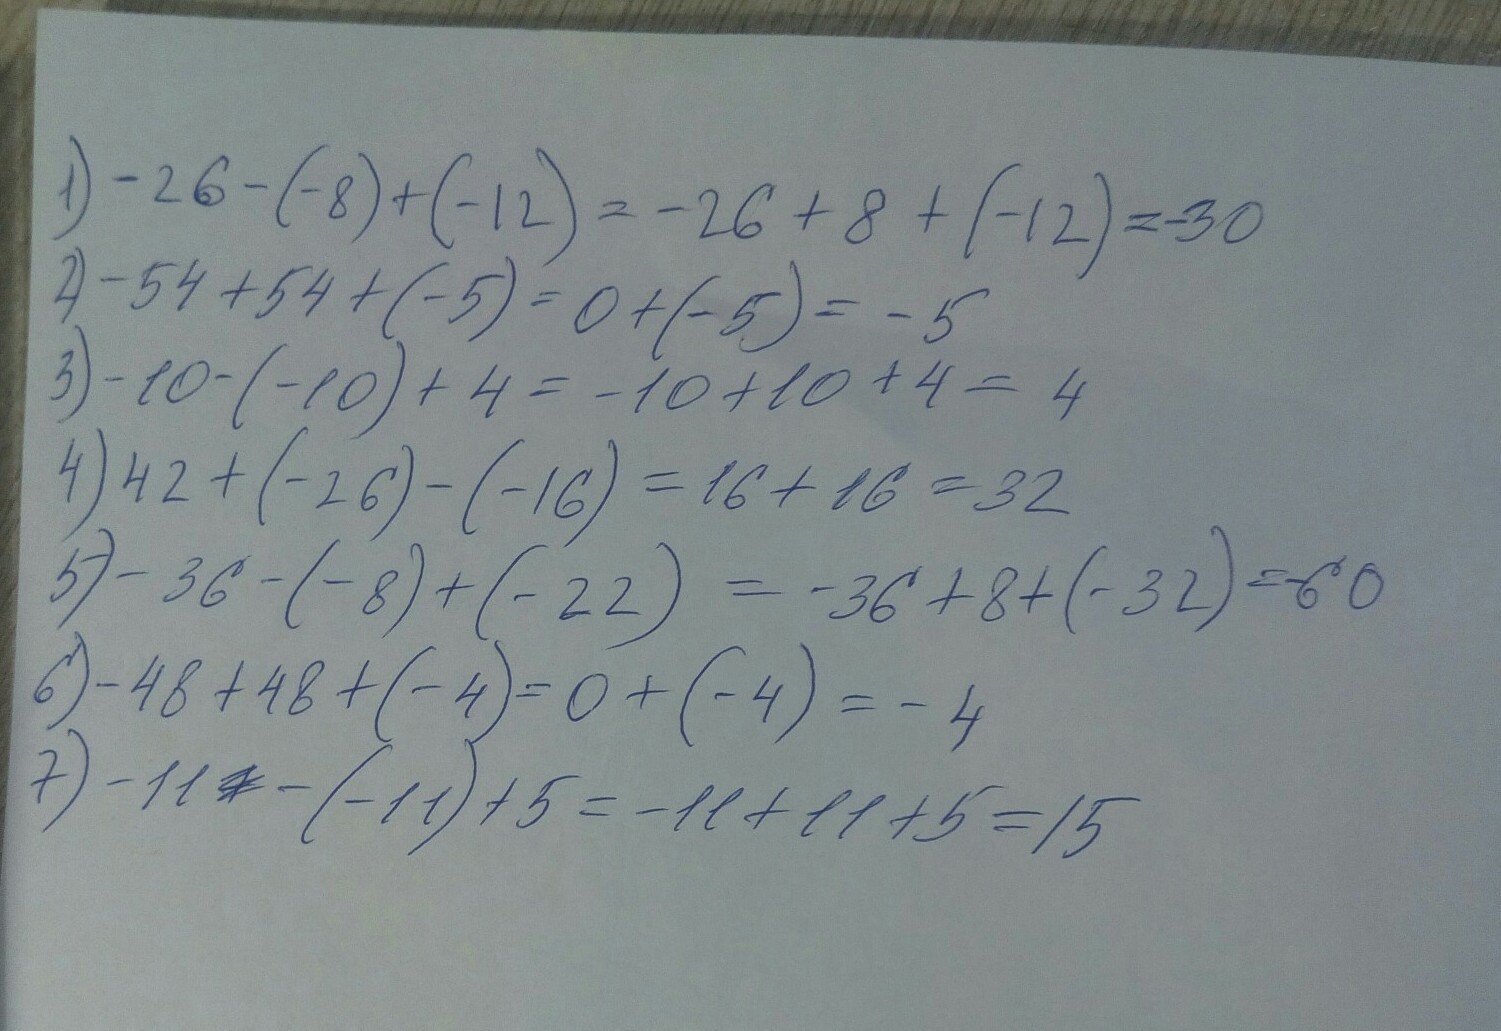 1) -26-(-8)+(-12) = -26+8+(-12)=-30
2) -54+54+(-5)=0+(-5)=-5
3) -10-(-10)+4=-10+10+4=4
4) 42+(-26)-(-16)=16+16=32
5) -36-(-8)+(-22) = -36+8+(-32)=-60
6) -48+48+(-4)=0+(-4)=-4
7) -11-(-11)+5=-11+11+5=15